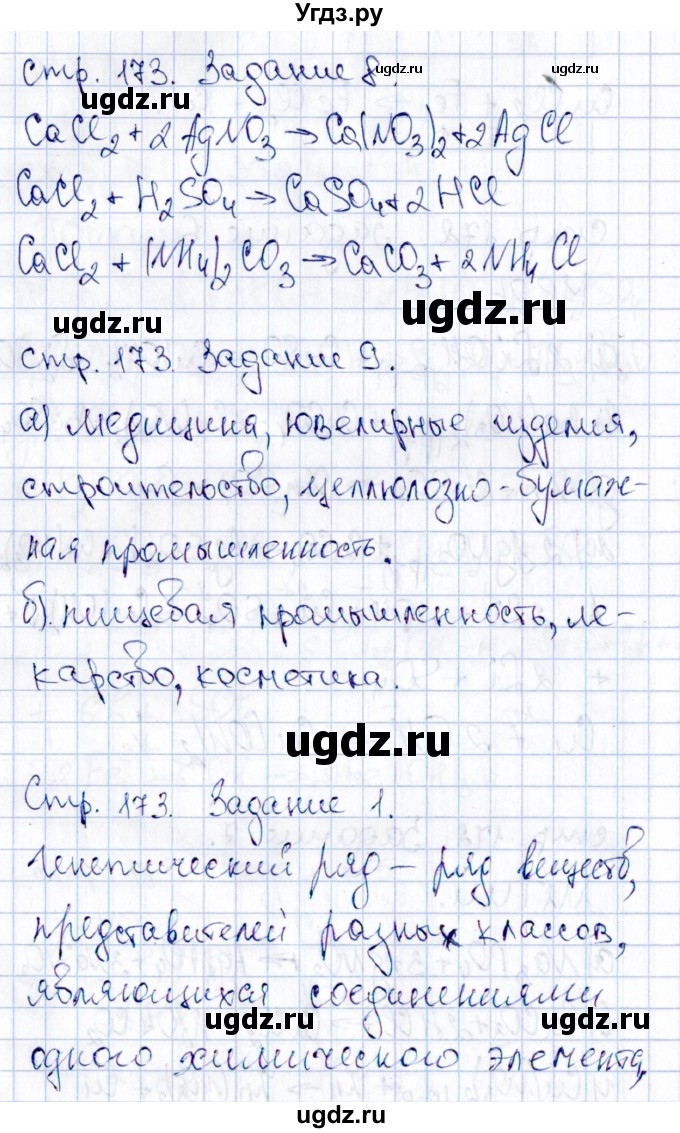 Угдз.ру
стр. 173. Задание 8.
ugdz.ru
ugdz.ru
CaCl2 + 2AgNO3 → Ca(NO3)2 + 2AgCl
CaCl2 + H2SO4 → CaSO4 + 2HCl
CaCl2 + (NH4)2CO3 → CaCO3 + 2NH4Cl
ugdz.ru
ugdz.ru
стр. 173. Задание 9.
а) медицина, ювелирные изделия,
строительство, целлюлозно-бумаж-
ная промышленность.
б). пищевая промышленность, ле-
карство, косметика.
ugdz.ru
Стр. 173. Задание 1.
Генетический ряд – ряд веществ,
представителей разных классов,
являющихся соединениями
ugdz.ru
ugdz.ru
одного химического элемента,
ugdz.ru